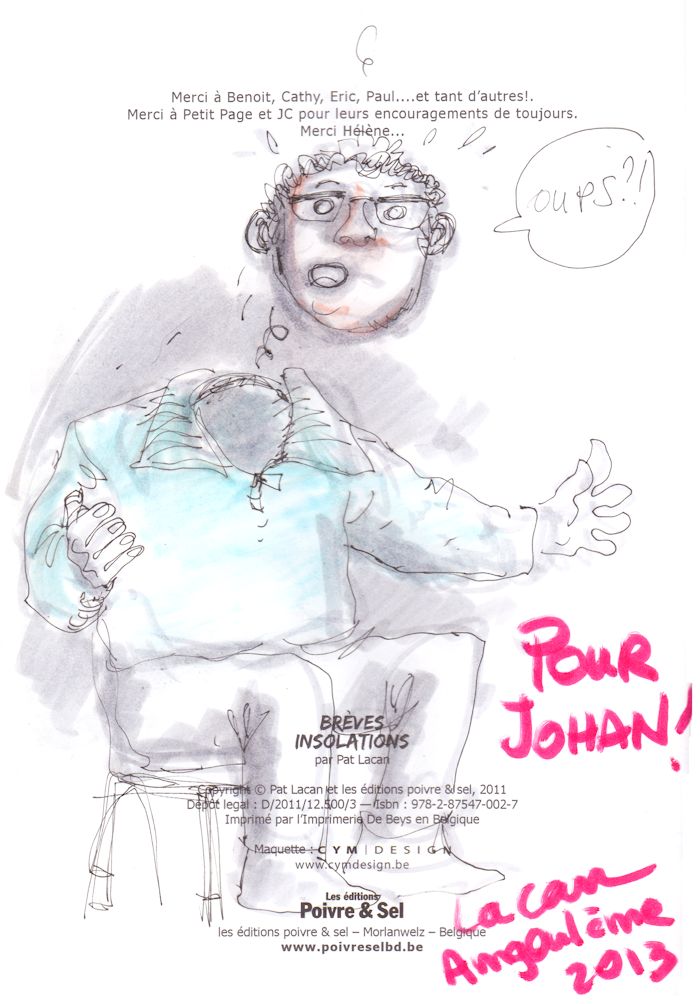 Merci à Benoit, Cathy, Eric, Paul....et tant d'autres!.
Merci à Petit Page et JC pour leurs encouragements de toujours.
Merci Hélène...
OUPS?!
POUR
JOHAN!
BRÈVES
INSOLATIONS
par Pat Lacan
Copyright © Pat Lacan et les éditions poivre & sel, 2011
Dépot legal : D/2011/12.500/3 — Isbn : 978-2-87547-002-7
Imprimé par l'Imprimerie De Beys en Belgique
Maquette : CYM|DESIGN
www.cymdesign.be
Les éditions
Poivre & Sel
les éditions poivre & sel – Morlanwelz – Belgique
www.poivreselbd.be
Lacan
Angoulême
2013